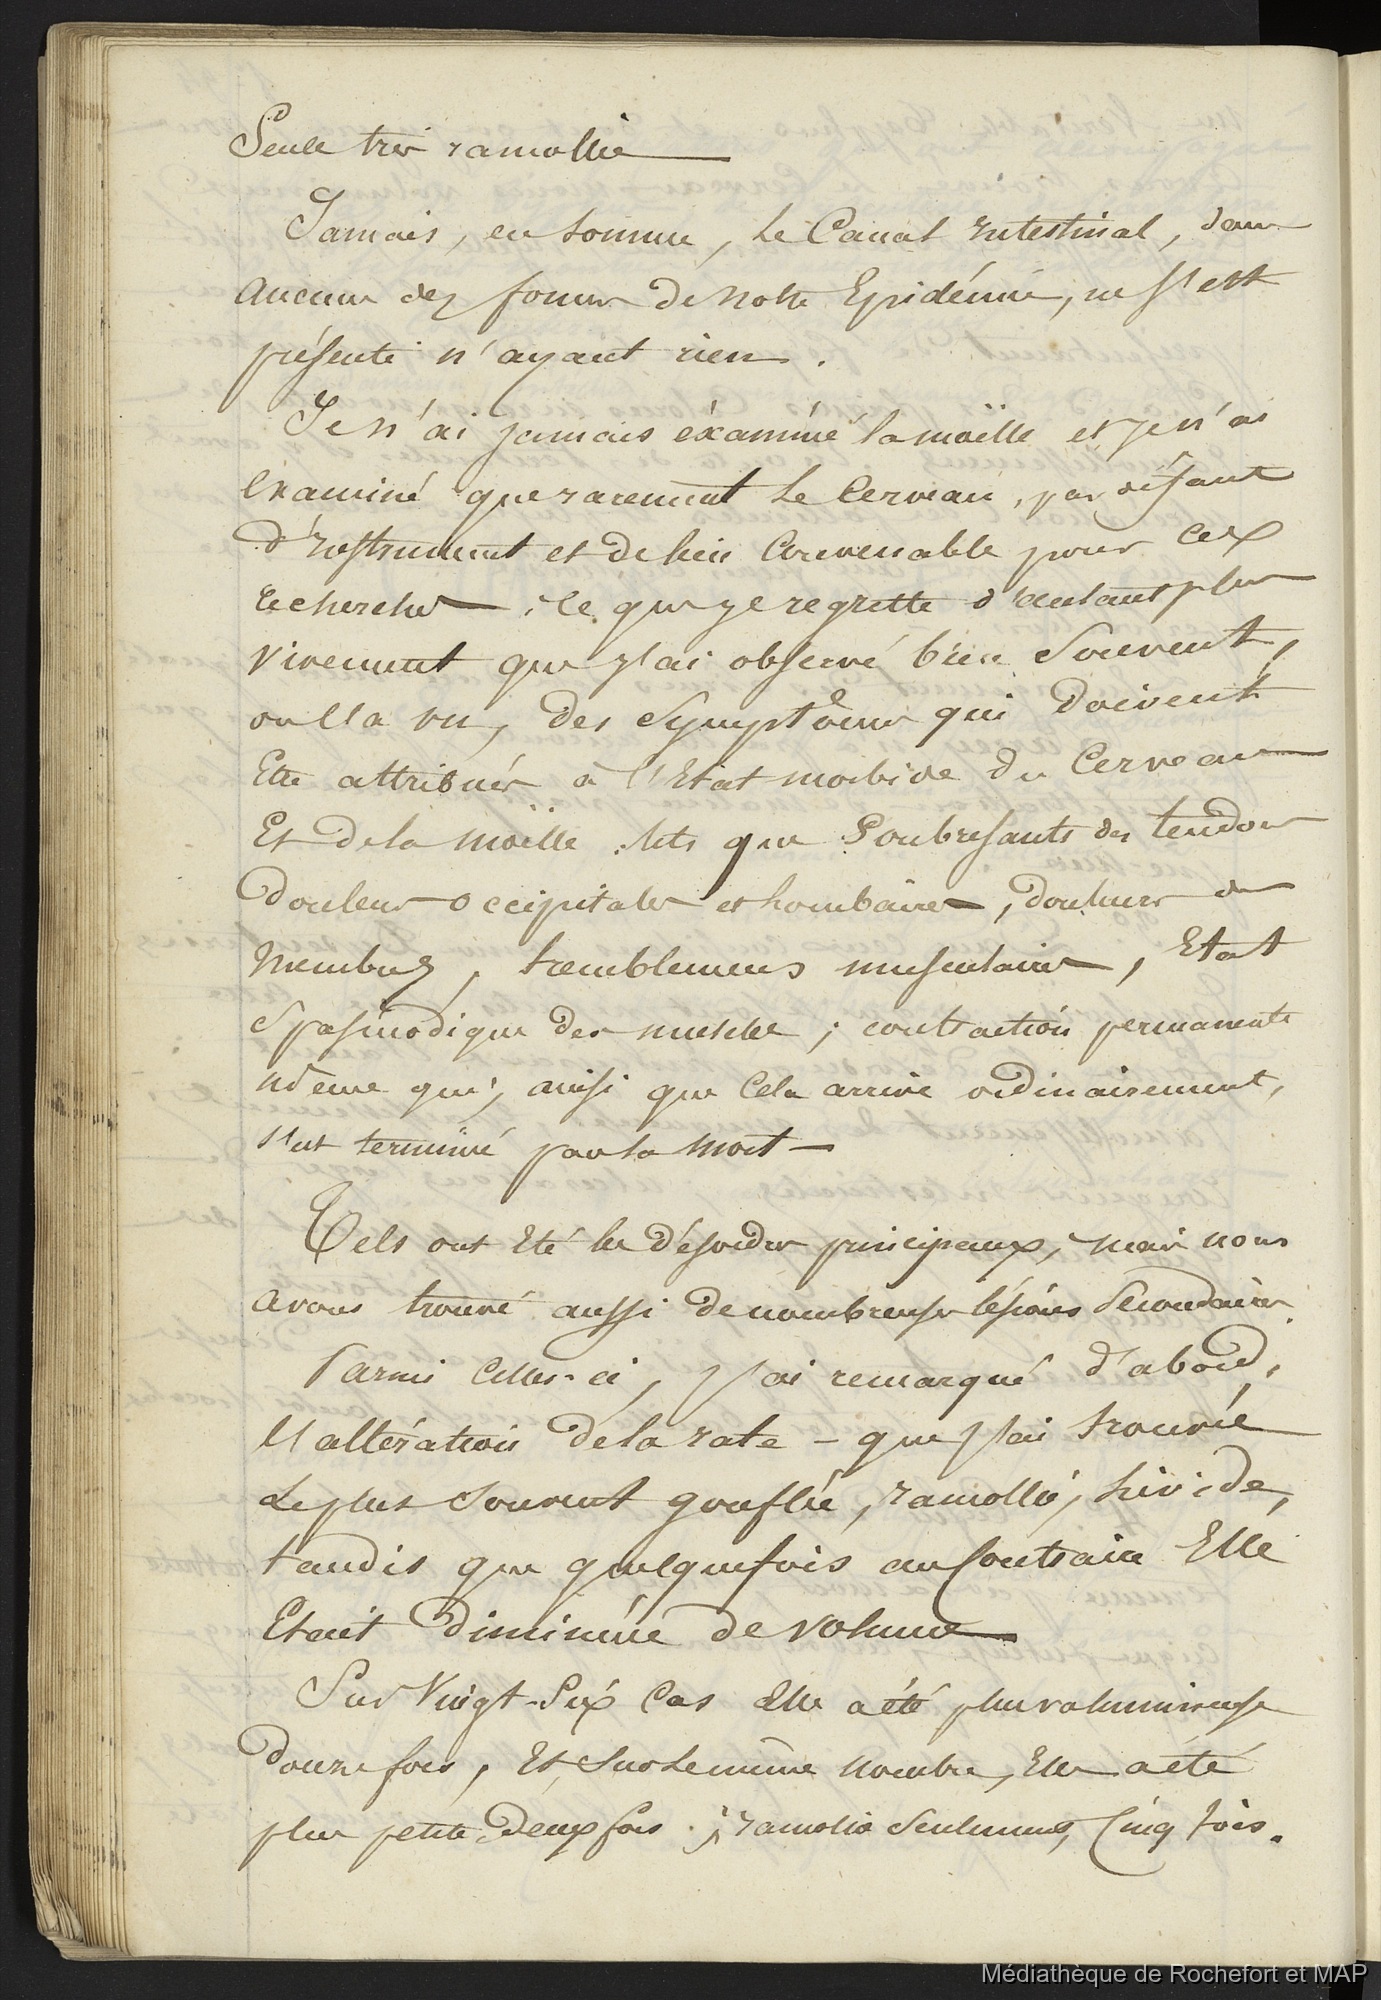 Seule très ramollie
Jamais, en somme, le Canal intestinal, dans
aucune des formes de notre Epidémie, ne s'est
présenté n'ayant rien.
Je n'ai jamais éxaminé la moëlle et je n'ai
Examiné que rarement le Cerveau, par défaut
d'instrument et de lieu Convenable pour ces
recherches ; ce que je regrette d'autant plus
vivement que j'ai observé bien Souvent,
on l'a vu, des Symptômes qui doivent
Etre attribués à l'Etat morbide du Cerveau
Et de la moëlle : tels que Soubresauts des tendons
Douleurs occipitales et lombaires, douleurs des
Membres, tremblemens musculaires, Etat
Spasmodique des muscles ; contraction permanente
même qui, ainsi que Cela arrive ordinairement,
s'est terminé par la mort —
Tels ont Eté les désordres principaux, mais nous
avons trouvé aussi de nombreuses lésions Secondaires.
Parmi Celles-ci, j'ai remarqué d'abord,
l'altération de la rate — que j'ai trouvée
Le plus souvent gonflée, ramollie, livide,
tandis que quelquefois au Contraire Elle
Etait diminuée de volume
Sur Vingt-Six Cas Elle a été plus volumineuse
Douze fois, Et Sur le même nombre, Elle a été
plus petite deux fois ; ramollie Seulement, Cinq fois.
Médiathèque de Rochefort et MAP